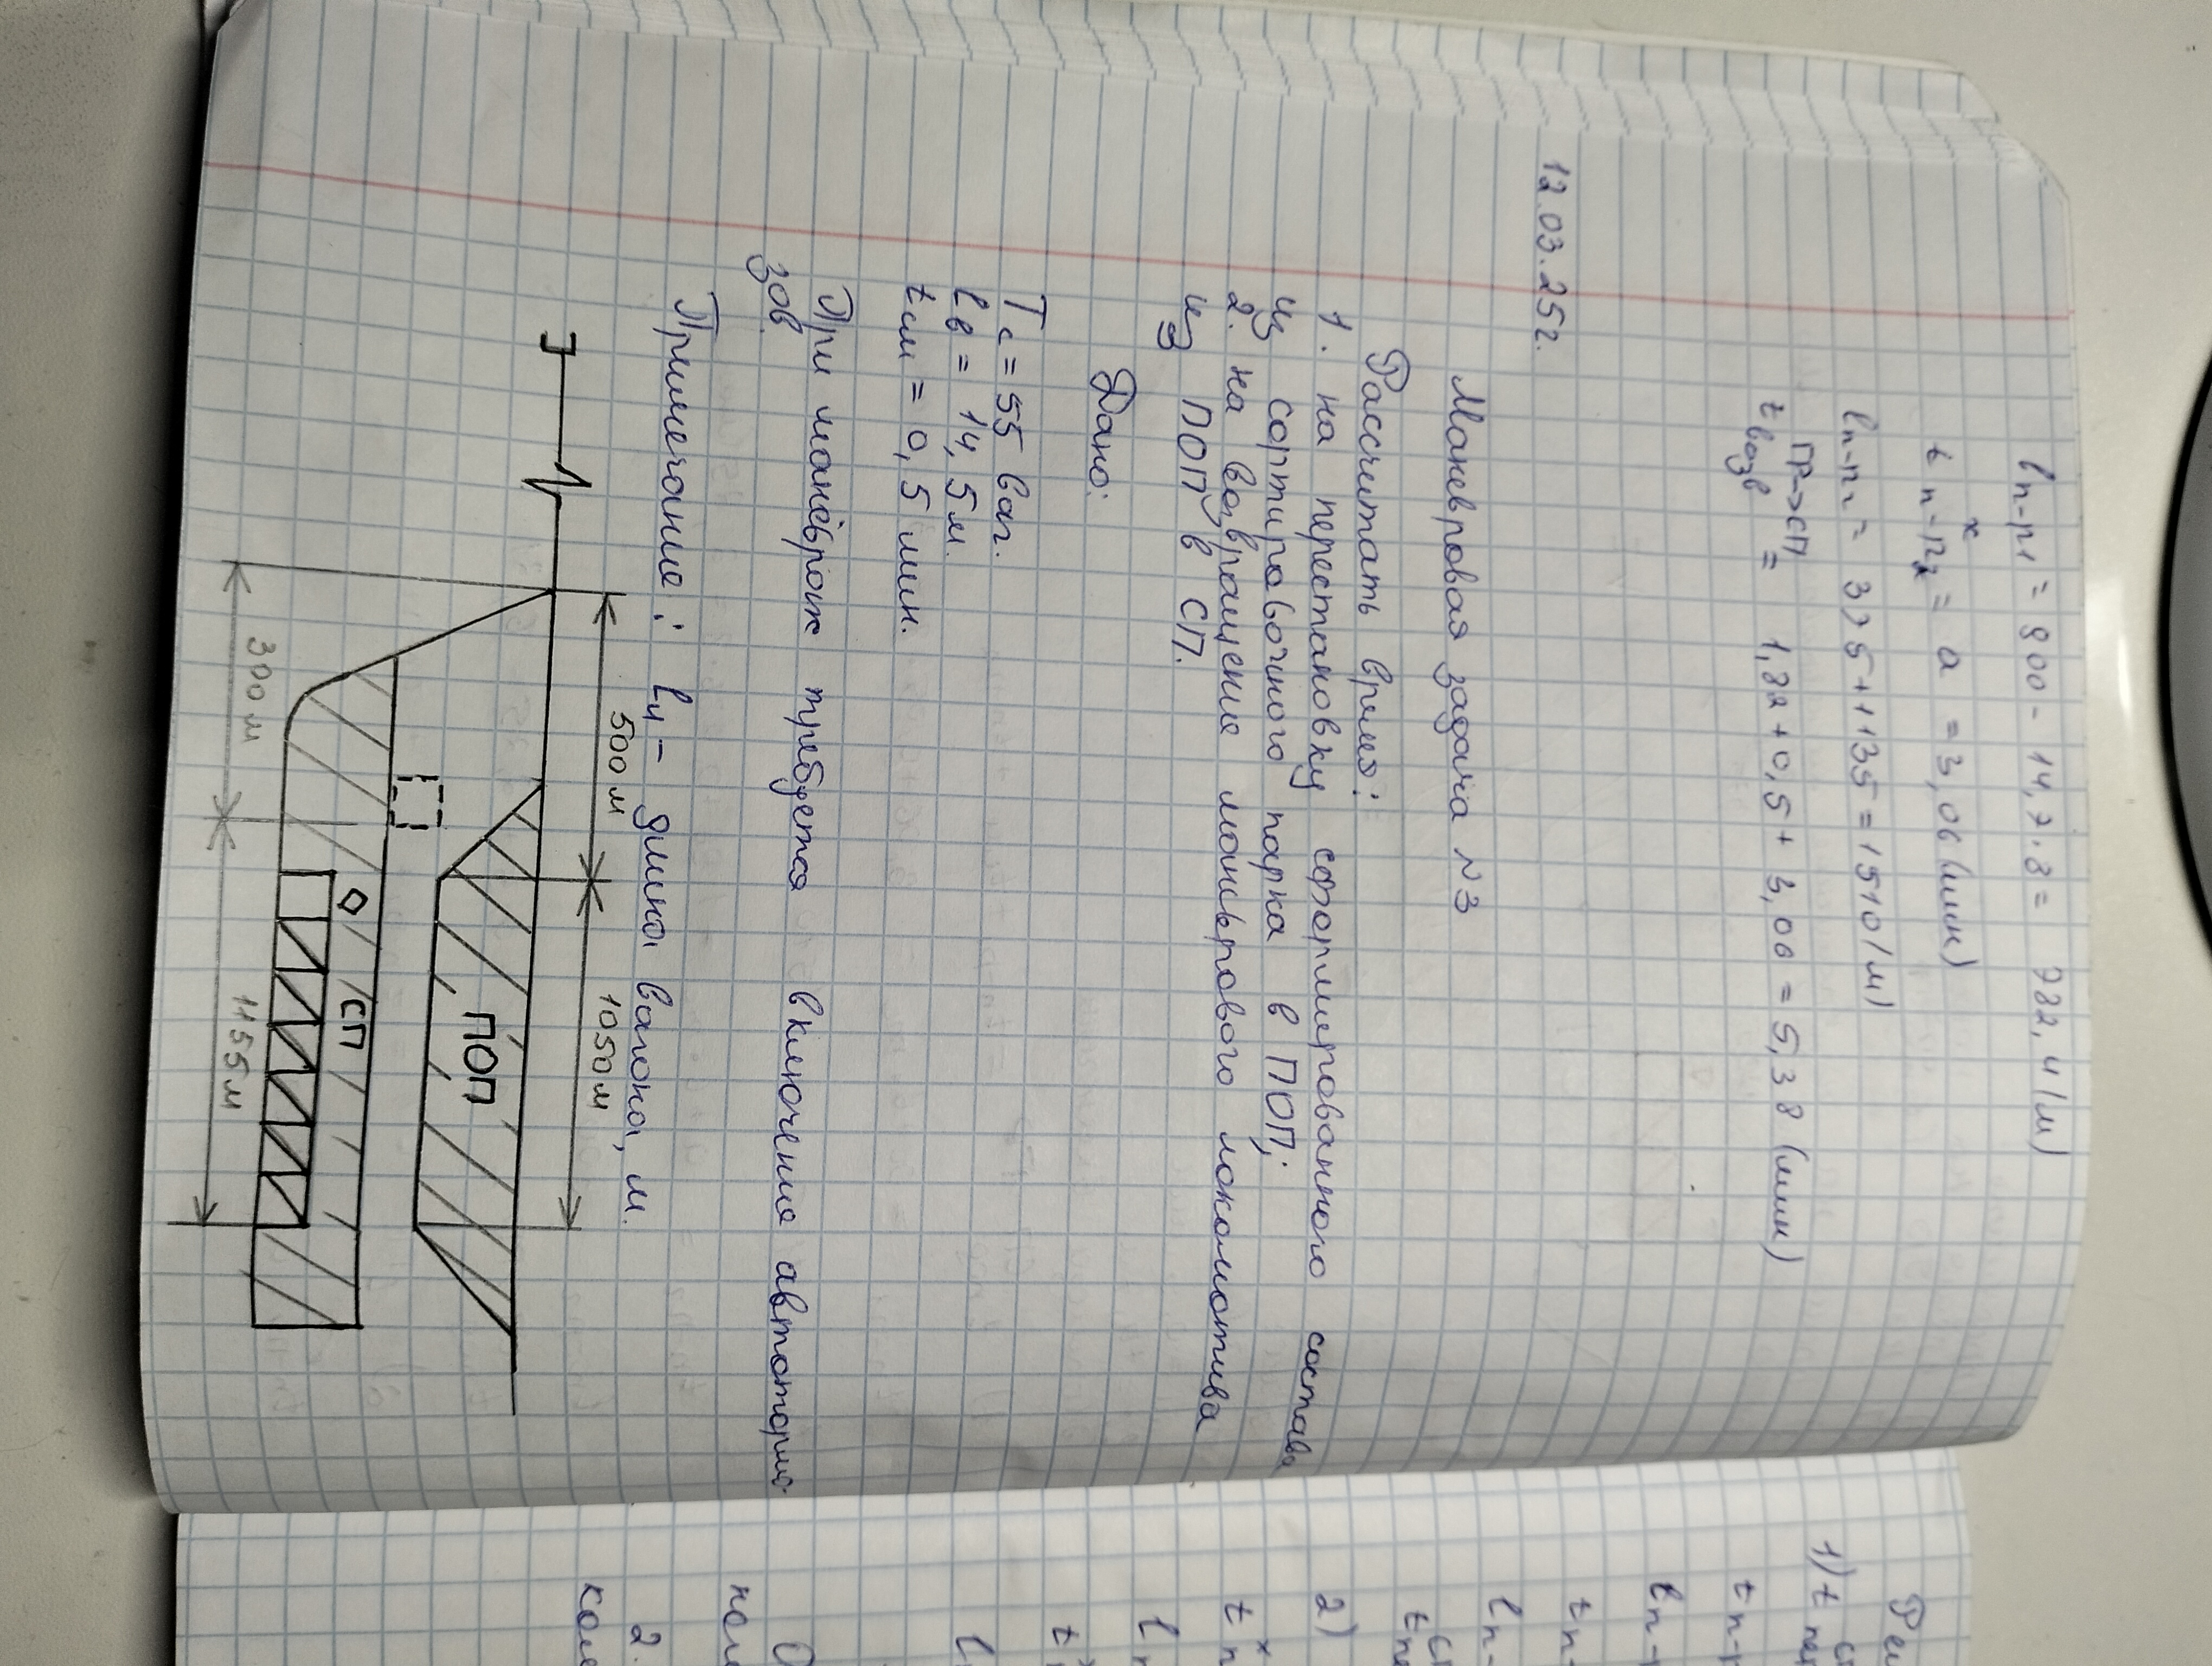 lп-п1 = 800 - 14,7.8 = 782,4 (м)
t х п-п2 = а = 3,06 (мин)
lп-п2 = 375+1135 = 1510 (м)
t ПР→СП возв = 1,82+0,5+3,06 = 5,38 (мин)
12.03.25г.
Маневровая задача №3
Рассчитать время:
1. на перестановку сформированного состава
из сортировочного парка в ПОП;
2. на возвращение маневрового локомотива
из ПОП в СП.
Дано:
Тс = 55 ваг.
lв = 14,5 м.
tсм = 0,5 мин.
При манёврах требуется включение автотормо-
зов.
Примечание: lч - длина вагона, м.
500 м
1050 м
ПОП
СП
300 м
1155 м
Реш
1) t сп пер
t п-п
lп-п
t п-
lп-
t сп пе
2)
t х п
lп
t х
l
О
нси
2.
коле